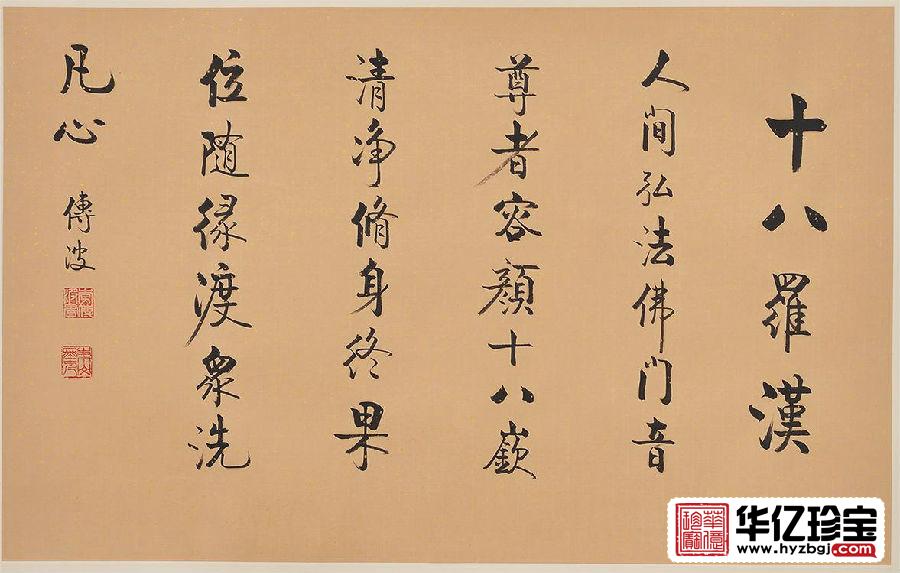 十八羅漢
人间弘法佛门音
尊者容顏十八嶔
清净脩身终果
位随缘渡衆洗
凡心
傅波
华亿珍宝
www.hyzbgj.com